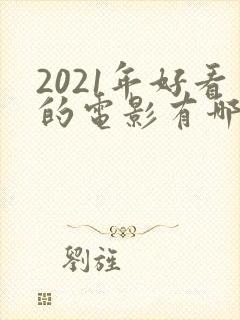 2021年好看
的電影有哪
劉旌